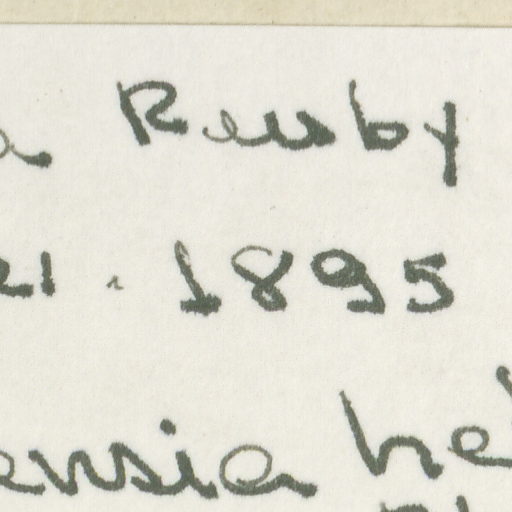 a Reusby
21. 1895
ensia he